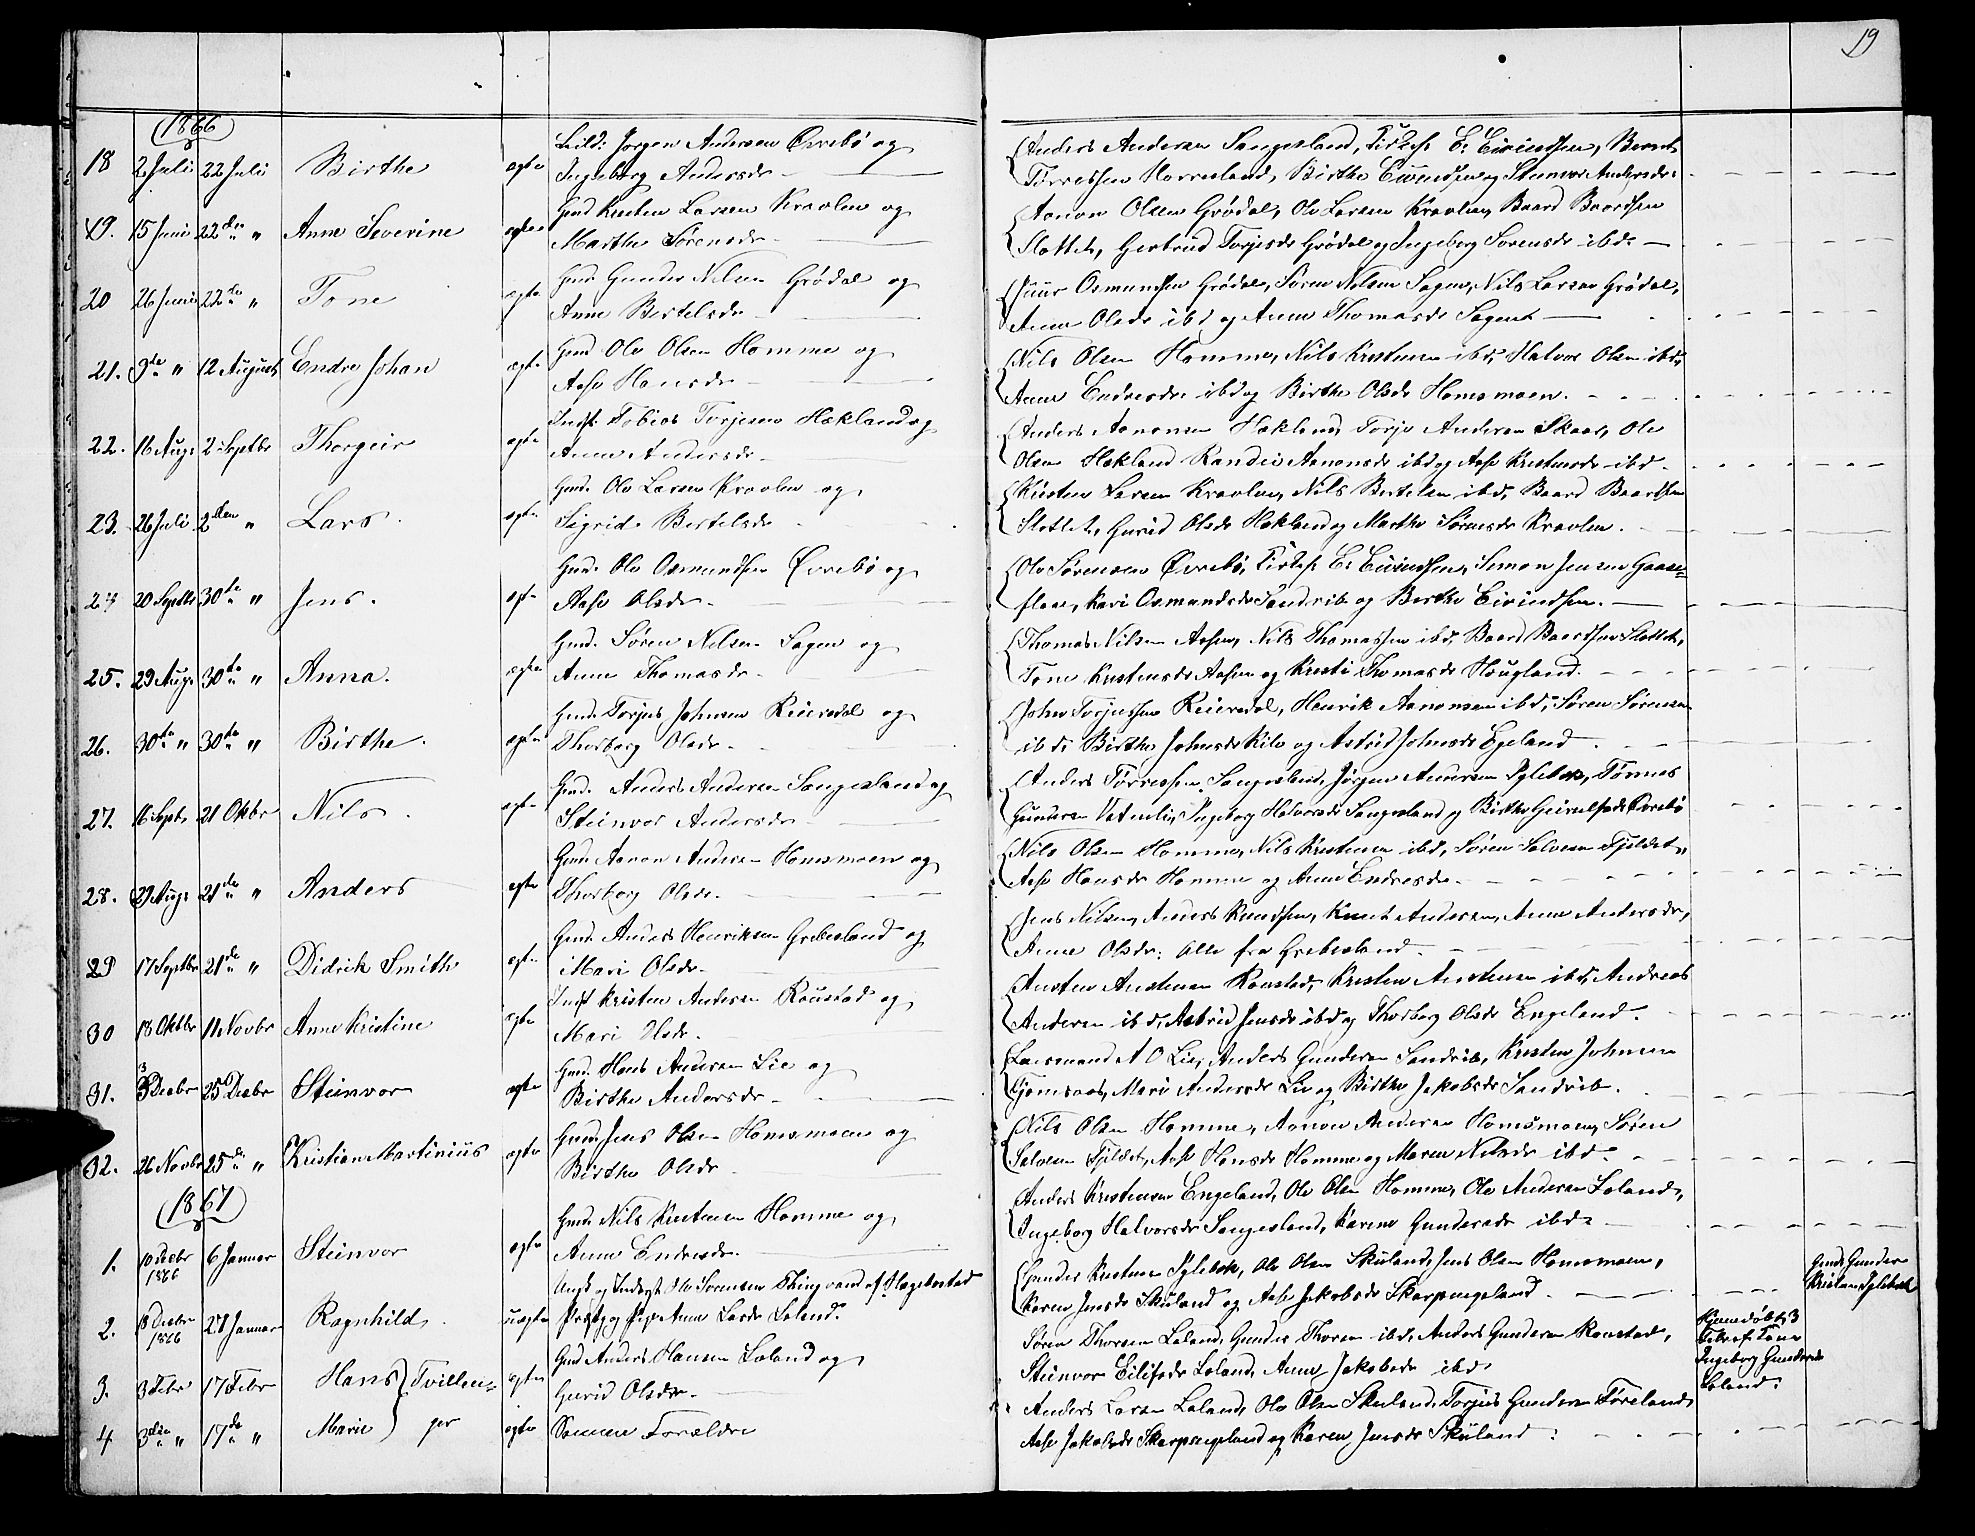 19
1866
18 2 Juli 22 Juli Birthe ægte Leild: Jørgen Andersen Øvrebø og
Ingeborg Andersdr
Anders Andersen Sangesland, Kirkes. E. Eivindsen, Bernt
Tørressen Horresland, Birthe Eivindsen og Steinvor Andersdr
19. 15 Juni 22den " Anne Severine ægte Gmd Kristen Larsen Kravlen og
Marthe Sørensdr
Aanon Olsen Grødal, Ole Larsen Kravlen, Baard Baardsen
Slottet, Gertrud Torjesdr Grødal og Ingeborg Sørensdr ibd.
20 26 Juni 22de " Tone ægte Gmd. Gunder Nilsen Grødal og
Anne Bertelsdr
Osmundsen Grødal, Søren Nilsen Sagen, Nils Larsen Grødal,
Anne Olsdr ibd og Anne Thomasdr Sagen
21. 9de " 12 August Endre Johan ægte Gmd. Ole Olsen Homme og
Aase Hansdr
Nils Olsen Homme, Nils Kristensen ibd, Halvor Olsen ibd,
Anne Endresdr ibd og Birthe Olsdr Homsmoen.
22. 16 Aug. 2 Septbr Thorgeir ægte Indst. Tobias Torjesen Hækland og
Anne Andersdr
Anders Aanonsen Hækland, Torje Andersen Skaar, Ole
Olsen Hækland Randei Aanonsdr ibd og Aase Kristensdr ibd.
23. 26 Juli 2den " Lars. ægte Gmd. Ole Larsen Kravlen og
Sigrid Bertelsdr
Kristen Larsen Kravlen, Nils Bertelsen ibd, Baard Baardsen
Slottet, Gurid Olsdr Hækland og Marthe Sørensdr Kravlen.
24 20 Septbr 30te " Jens. ægte Gmd. Ole Osmundsen Øvrebø og
Aase Olsdr.
Ole Sørensen Øvrebø, Kirkes. E. Eivindsen, Simon Jensen Gaase=
flaae, Kari Osmundsdr Sandrib og Berthe Eivindsen.
25. 29 Aug. 30te " Anna. ægte Gmd. Søren Nilsen Sagen og
Anne Thomasdr.
Thomas Nilsen Aasen, Nils Thomassen ibd, Baard Baardsen Slottet,
Tone Kristensdr Aasen og Kristi Thomasdr Hougland.
26. 30te " 30te " Birthe. ægte Gmd. Torjus Johnsen Reiersdal og
Thorborg Olsdr.
John Torjussen Reiersdal, Henrik Aanonsen ibd, Søren Sørensen
ibd, Birthe Johnsdr Kile og Astrid Johnsdr Egeland.
27. 16 Septb. 21 Oktbr Nils. ægte Gmd. Anders Andersen Sangesland og
Steinvor Andersdr
Anders Tørressen Sangesland, Jørgen Andersen Iglebæk, Tønnes
Gundersen Vatneli, Ingeborg Halvorsdr Sangesland og Birthe Geirulfsdr Øvrebø
28. 29 Aug. 21de " Anders ægte Gmd. Aanon Andersen Homsmoen og
Thorborg Olsdr.
Nils Olsen Homme, Nils Kristensen ibd, Søren Salvesen Fjeldet,
Aase Hansdr Homme og Anne Endresdr.
29 17 Septbr 21de " Didrik Smith ægte Gmd. Anders Henriksen Grebesland og
Mari Olsdr.
Jens Nilsen, Anders Knudsen, Knut Andersen, Anne Andersdr,
Anne Olsdr. alle fra Grebesland.
30 18 Oktbr 11 Novbr Anne Kristine ægte Indst Kristen Andersen Roustad og
Mari Olsdr.
Austen Austensen Roustad, Kristen Austensen ibd, Andreas
Andersen ibd, Astrid Jensdr ibd og Thorborg Olsdr Engeland.
31. 3 Decbr 25 Decbr Steinvor ægte Gmd. Hans Andersen Lie og
Birthe Andersdr
Lensmand A O Lie, Anders Gundersen Sandrib, Kristen Johnsen
Tjomsaas, Mari Andersdr Lie og Birthe Jakobsdr Sandrib.
32. 26 Novbr 25de " Kristian Martinius ægte Gmd. Jens Olsen Homsmoen og
Birthe Olsdr
Nils Olsen Homme, Aanon Andersen Homsmoen, Søren
Salvesen Fjeldet, Aase Hansdr Homme og Maren Nilsdr ibd.
1867
1. 10 Decbr 1866 6 Januar Steinvor ægte Gmd. Nils Kristensen Homme og
Anne Endresdr.
Anders Kristensen Engeland, Ole Olsen Homme, Ole Andersen Loland,
Ingeborg Halvorsdr Sangesland, Karine Gundersdr ibd.
2. 18 Decbr 1866 27 Januar Ragnhild. uægte Ungk og Inderst Ole Sørensen Thingvand af Hægebostad
Præstg. og Pige Anne Larsdr Loland.
Gunder Kristensen Iglebæk, Ole Olsen Skuland, Jens Olsen Homsmoen,
Karen Jensdr Skuland og Aase Jakobsdr Skarpengeland.
Gmd. Gunder
Kristensen Iglebæk
3. 3 Febr 17 Febr Hans ægte Gmd Anders Hansen Loland og
Gurid Olsdr.
Tvillin=
ger
Søren Thorsen Loland, Gunder Thorsen ibd, Anders Gundersen Roustad,
Steinvor Eilifsdr Loland, Anne Jakobsdr ibd
Hjemdøbt 3
Febr af Tone
Ingeborg Gundersdr
Loland.
4 3die " 17de " Marie ægte Samme Forældre
Anders Larsen Loland, Ole Olsen Skuland, Torjus Gundersen Føreland,
Aase Jakobsdr Skarpengeland og Karen Jensdr Skuland.